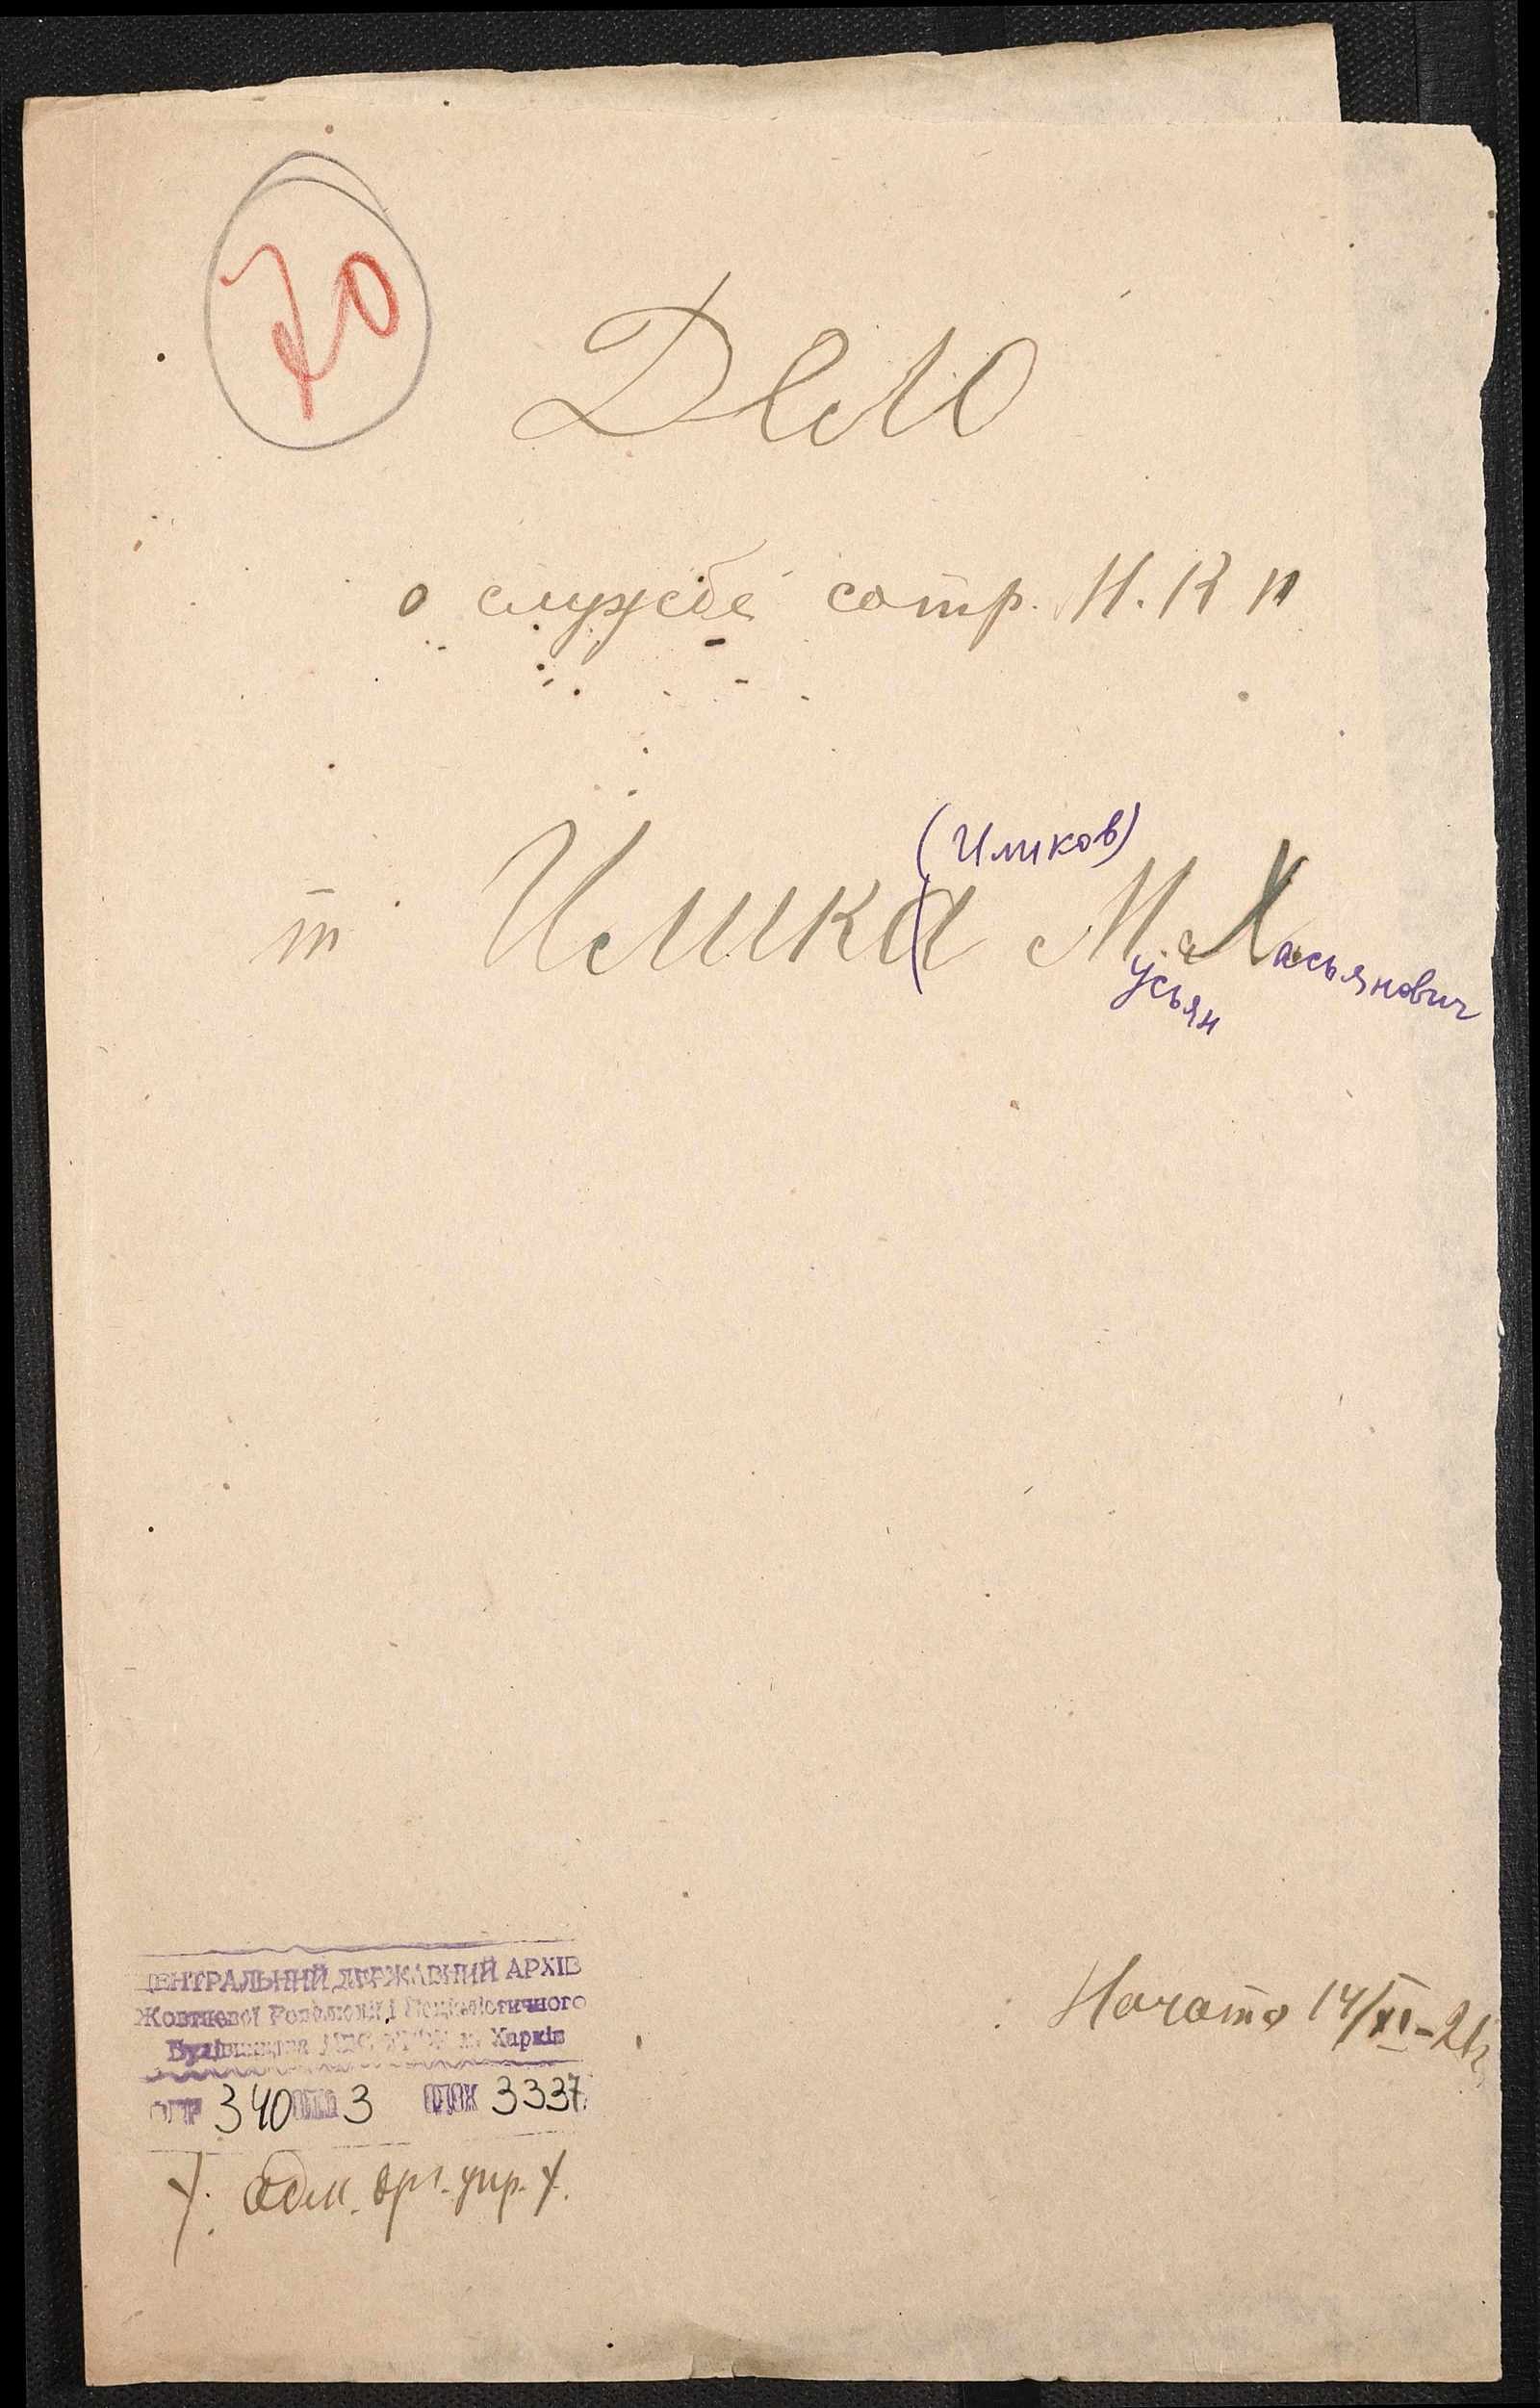 70
Дело
о службе сотр. Н.К П
(Иликов)
т Илика М. Х асьянович
усьян
Начато 14/XI-21г.
ЦЕНТРАЛЬНИЙ ДЕРЖАВНИЙ АРХІВ
Жовтневої Революції і Соціалістичного
Будівництва УРСР м. Харків
ФОНД 340 ОПИС 3 ОД.ЗБ. 3337
адм. орг. упр.